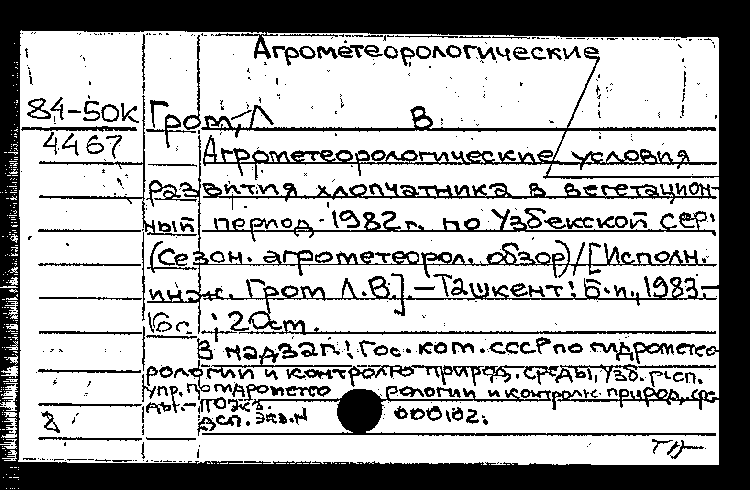 Агрометеорологические
84-50К Гром, Л В
4467 Агрометеорологические условия
развития хлопчатника в вегетацион-
ный период 1982г. по Узбекской ССР:
(Сезон. агрометеорол. обзор)/[Исполн.
инж. Гром Л.В.].—Ташкент: Б.и., 1983.—
16с.; 20см.
В надзаг.: Гос. ком. СССР по гидрометео-
рологии и контролю природ. среды, Узб. респ.
упр. по гидрометео рологии и контролю природ. сре-
ды.—
ДСП. Экз. N 000102.
2